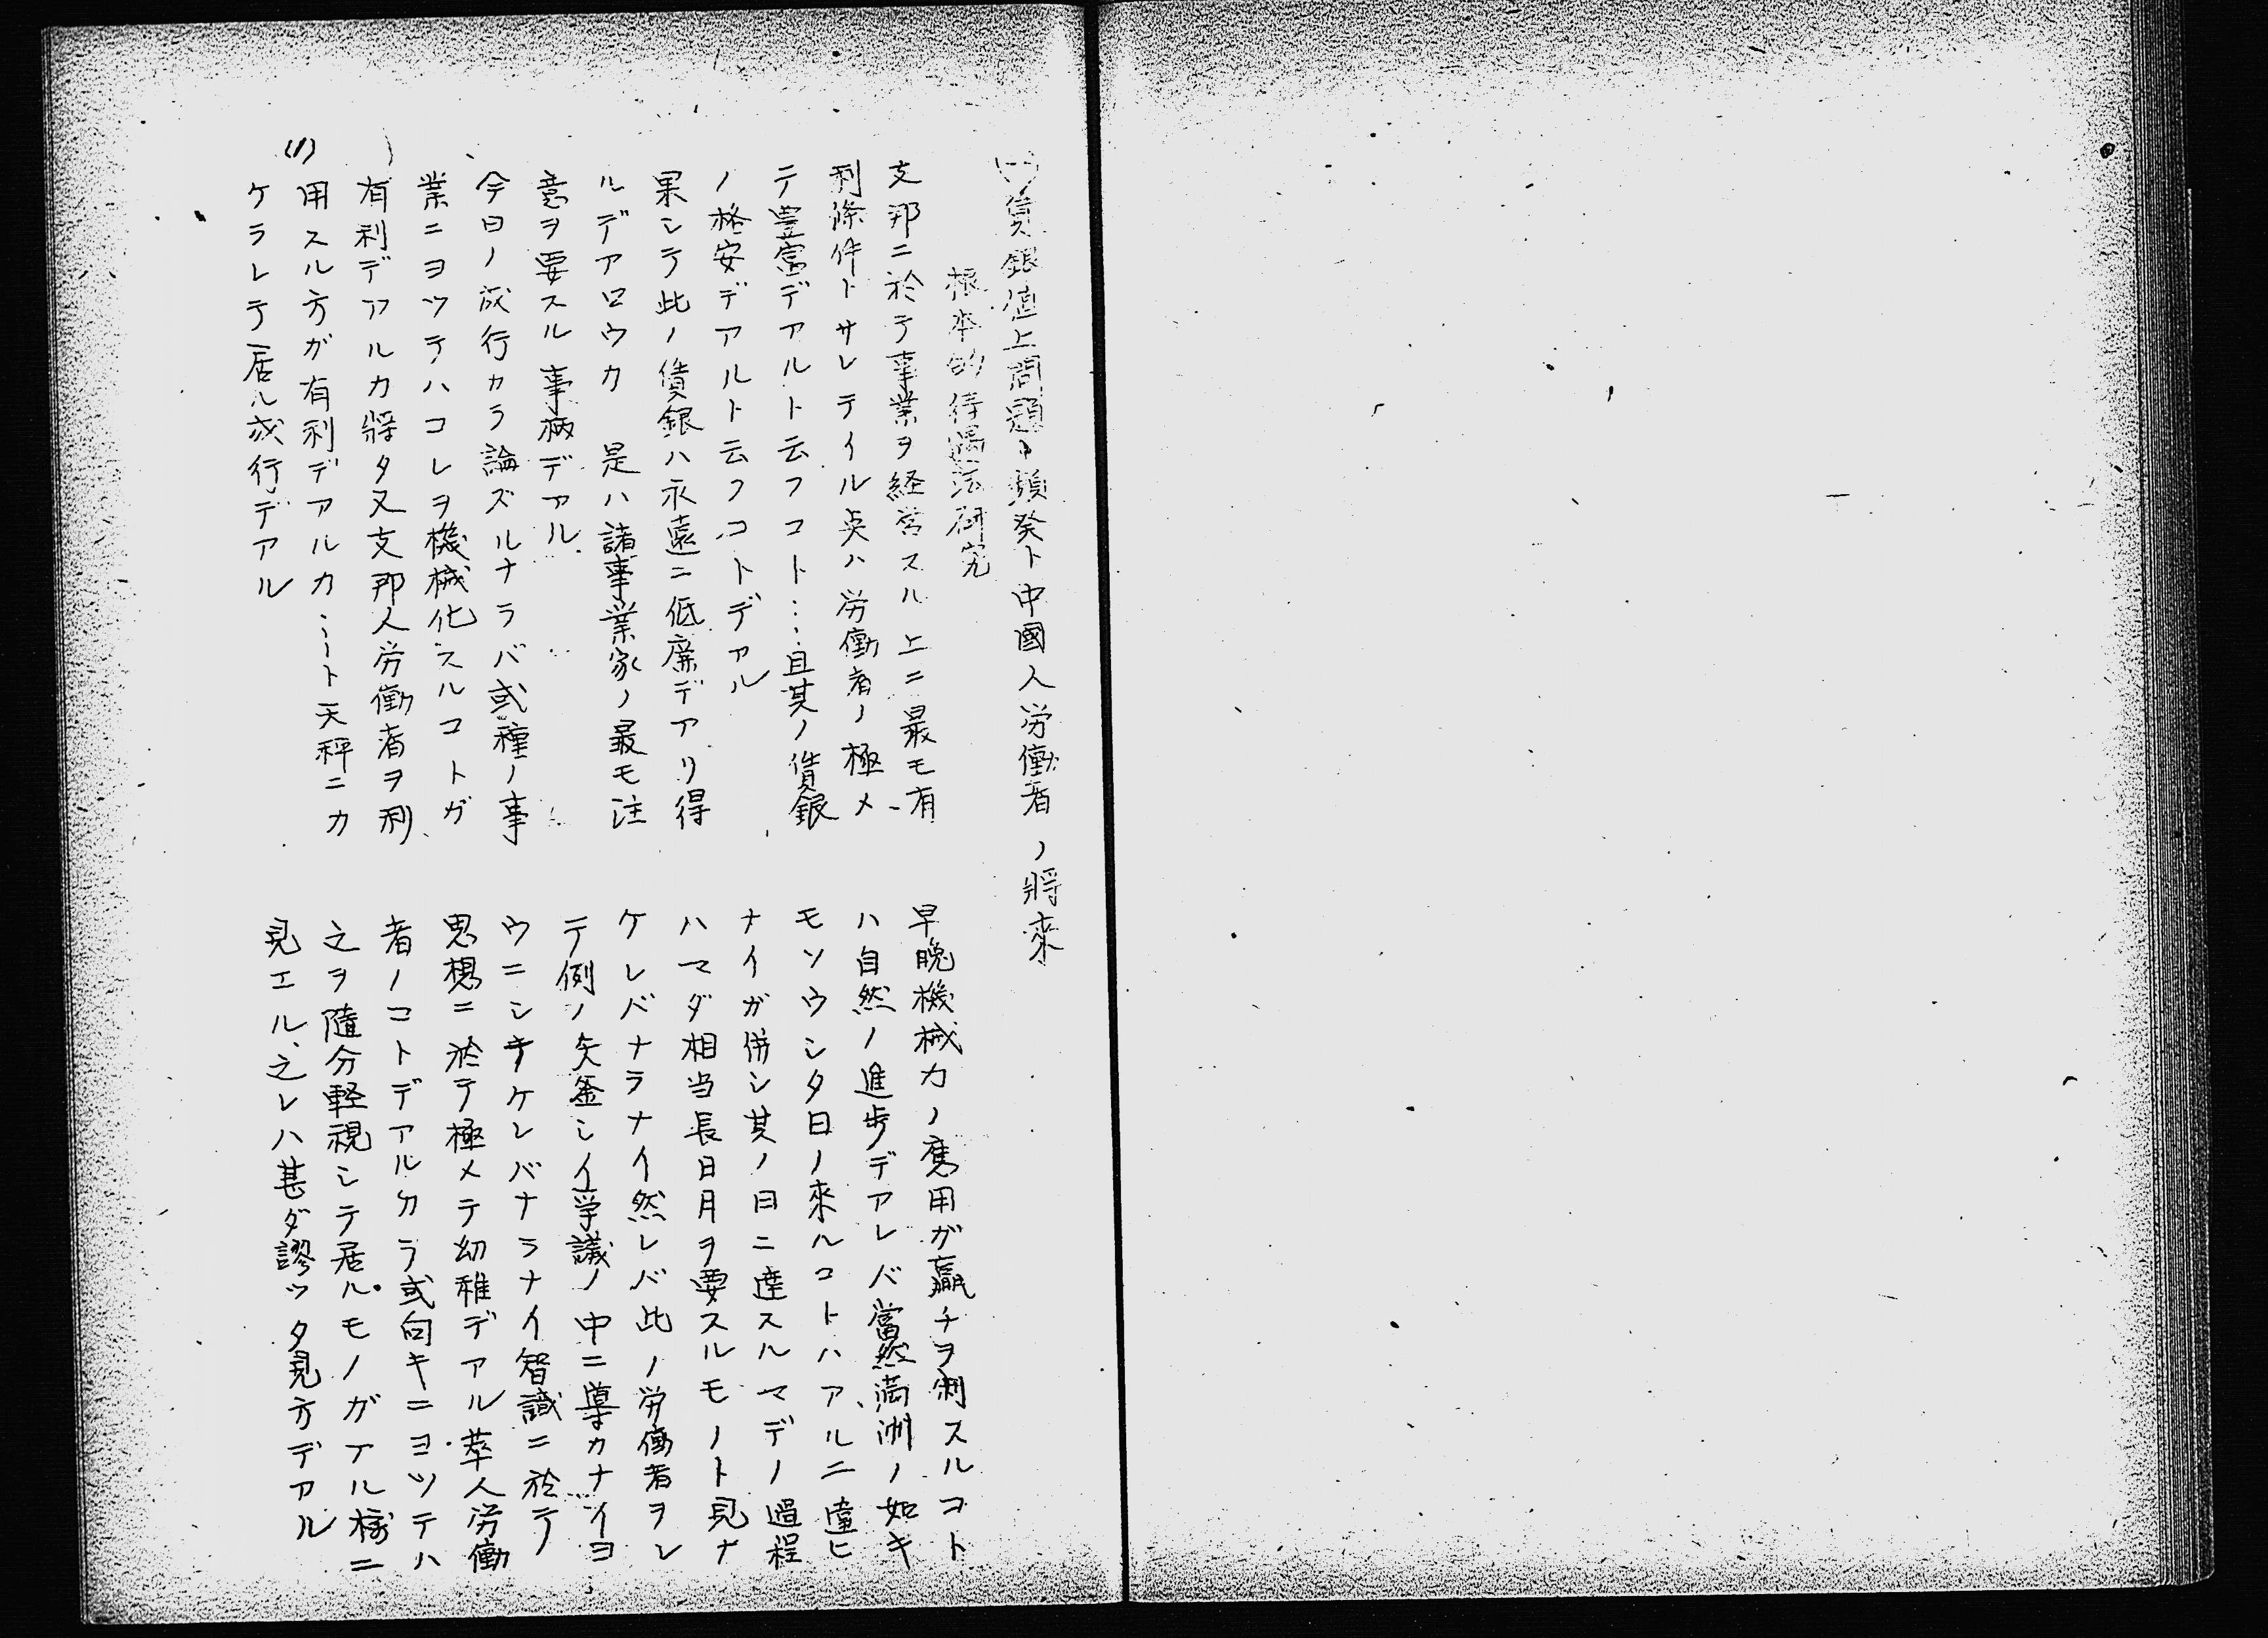 (一)賃銀値上問題ノ頻発ト中國人労働者ノ將来
根本的待遇法研究
支那ニ於テ事業ヲ経営スル上ニ最モ有
利條件トサレテイル点ハ労働者ノ極メ
テ豊富デアルト云フコト……且其ノ賃銀
ノ格安デアルト云フコトデアル
果シテ此ノ賃銀ハ永遠ニ低廉デアリ得
ルデアロウカ 是ハ諸事業家ノ最モ注
意ヲ要スル事柄デアル
今日ノ成行カラ論ズルナラバ或種ノ事
業ニヨツテハコレヲ機械化スルコトガ
有利デアルカ將タ又支那人労働者ヲ利
用スル方ガ有利デアルカ……ト天秤ニカ
ケラレテ居ル成行デアル
早晩機械力ノ應用ガ贏チヲ制スルコト
ハ自然ノ進歩デアレバ當然満洲ノ如キ
モソウシタ日ノ來ルコトハアルニ違ヒ
ナイガ併シ其ノ日ニ達スルマデノ過程
ハマダ相当長日月ヲ要スルモノト見ナ
ケレバナラナイ然レバ此ノ労働者ヲシ
テ例ノ矢釜シイ学議ノ中ニ導カナイヨ
ウニシナケレバナラナイ智識ニ於テ
思想ニ於テ極メテ幼稚デアル華人労働
者ノコトデアルカラ或向キニヨツテハ
之ヲ隨分軽視シテ居ルモノガアル様ニ
見エル、之レハ甚ダ謬ツタ見方デアル
(1)